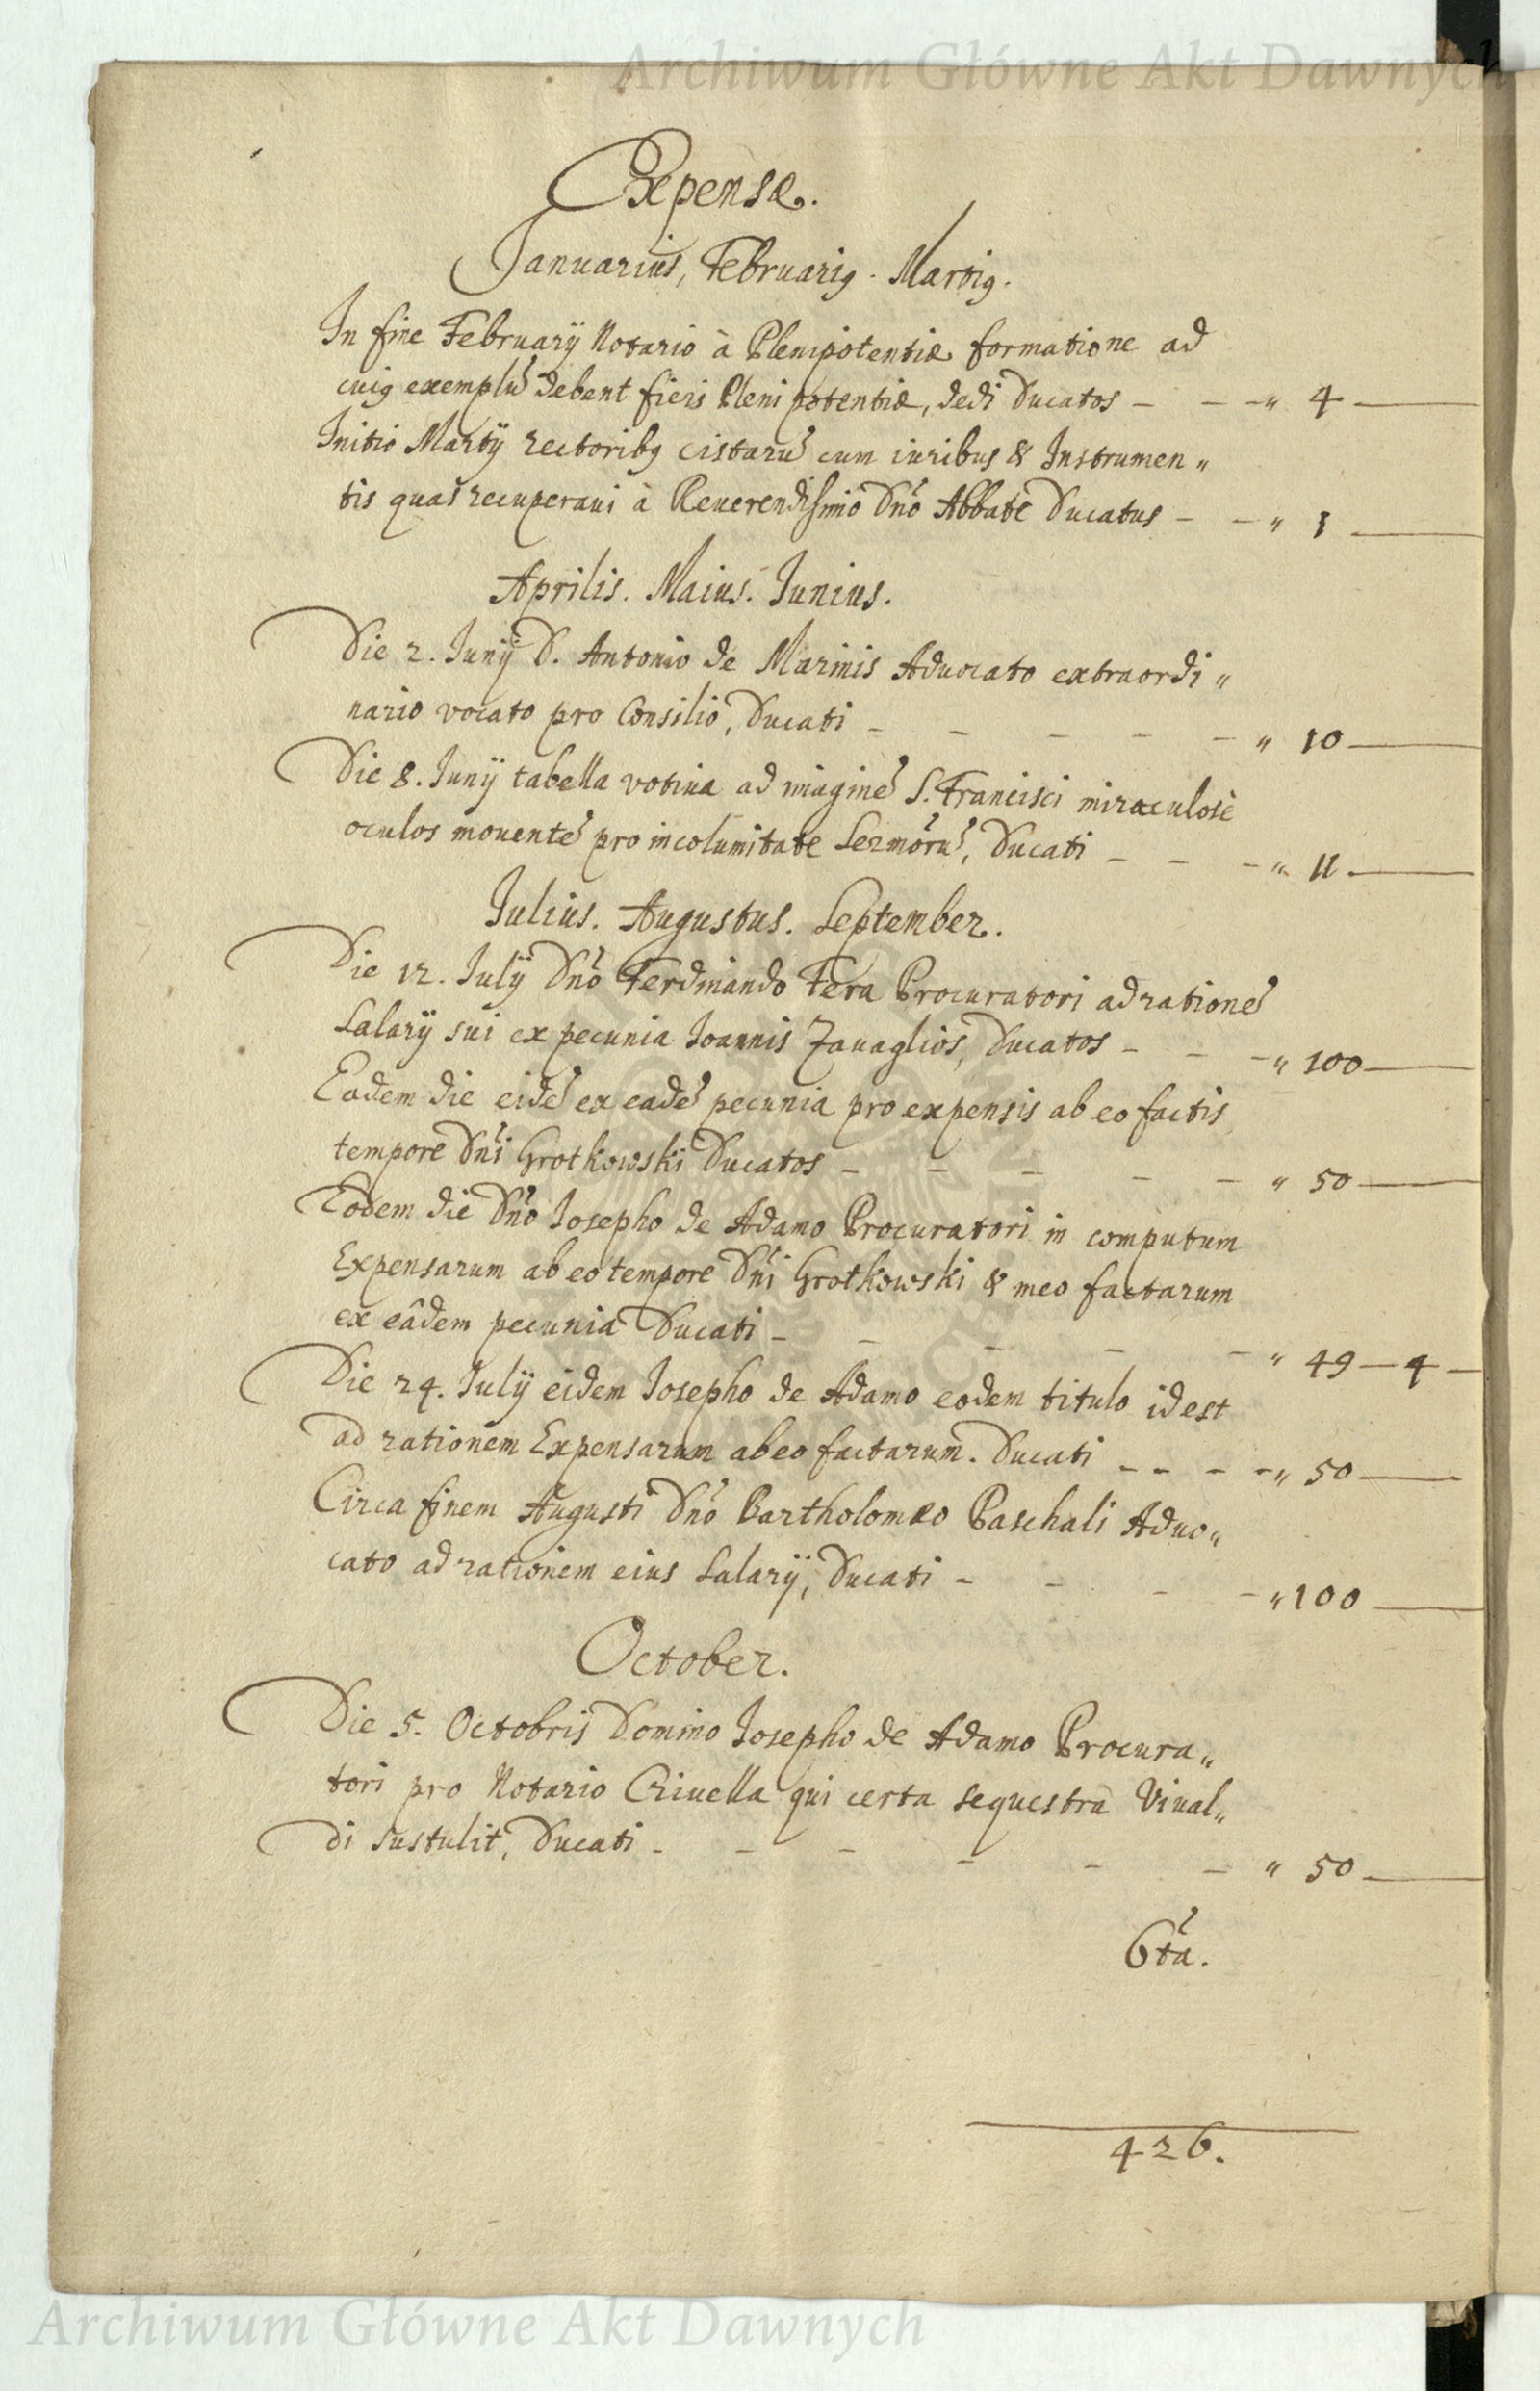 Archiwum Główne Akt Dawnych
Expensæ.
Januarius, Februariꝯ. Martiꝯ.
In fine Februarÿ Notario à Plenipotentiæ formatione ad
cuiꝯ exemplũ debent fieri Plenipotentiæ, dedi Ducatos – – – „ 4 —
Initio Martÿ rectoribꝯ cistarũ cum iuribus & Instrumen„
tis quas recuperaui à Reuerendissimo Dño Abbate Ducatus – – „ 1 —
Aprilis. Maius. Junius.
Die 2. Junÿ D. Antonio de Marinis Aduocato extraordi„
nario vocato pro Consilio, Ducati – – – – – „ 10 —
Die 8. Junÿ tabella votiua ad imaginẽ S. Francisci miraculosè
oculos mouentẽ pro incolumitate Sermõrũ, Ducati – – – „ 11 —
Julius. Augustus. September.
Die 12. Julÿ Dño Ferdinando Fera Procuratori ad rationẽ
Salarÿ sui ex pecunia Joannis Zauaglios, Ducatos – – – „ 100 —
Eadem die eidẽ ex eadẽ pecunia pro expensis ab eo factis
tempore Dñi Grotkowski Ducatos – – – – – „ 50 —
Eodem die Dño Josepho de Adamo Procuratori in computum
Expensarum ab eo tempore Dñi Grotkowski & meo factarum
ex eâdem pecunia Ducati – – – – – „ 49 — 4 —
Die 24. Julÿ eidem Josepho de Adamo eodem titulo id est
ad rationem Expensarum ab eo factarum. Ducati – – – – „ 50 —
Circa finem Augusti Dño Bartholomæo Paschali Aduo„
cato ad rationem eius Salarÿ, Ducati – – – – „ 100 —
October.
Die 5. Octobris Domino Josepho de Adamo Procura„
tori pro Notario Criuella qui certa sequestra Viual„
di sustulit, Ducati – – – – – – „ 50 —
6tã.
426.
Archiwum Główne Akt Dawnych